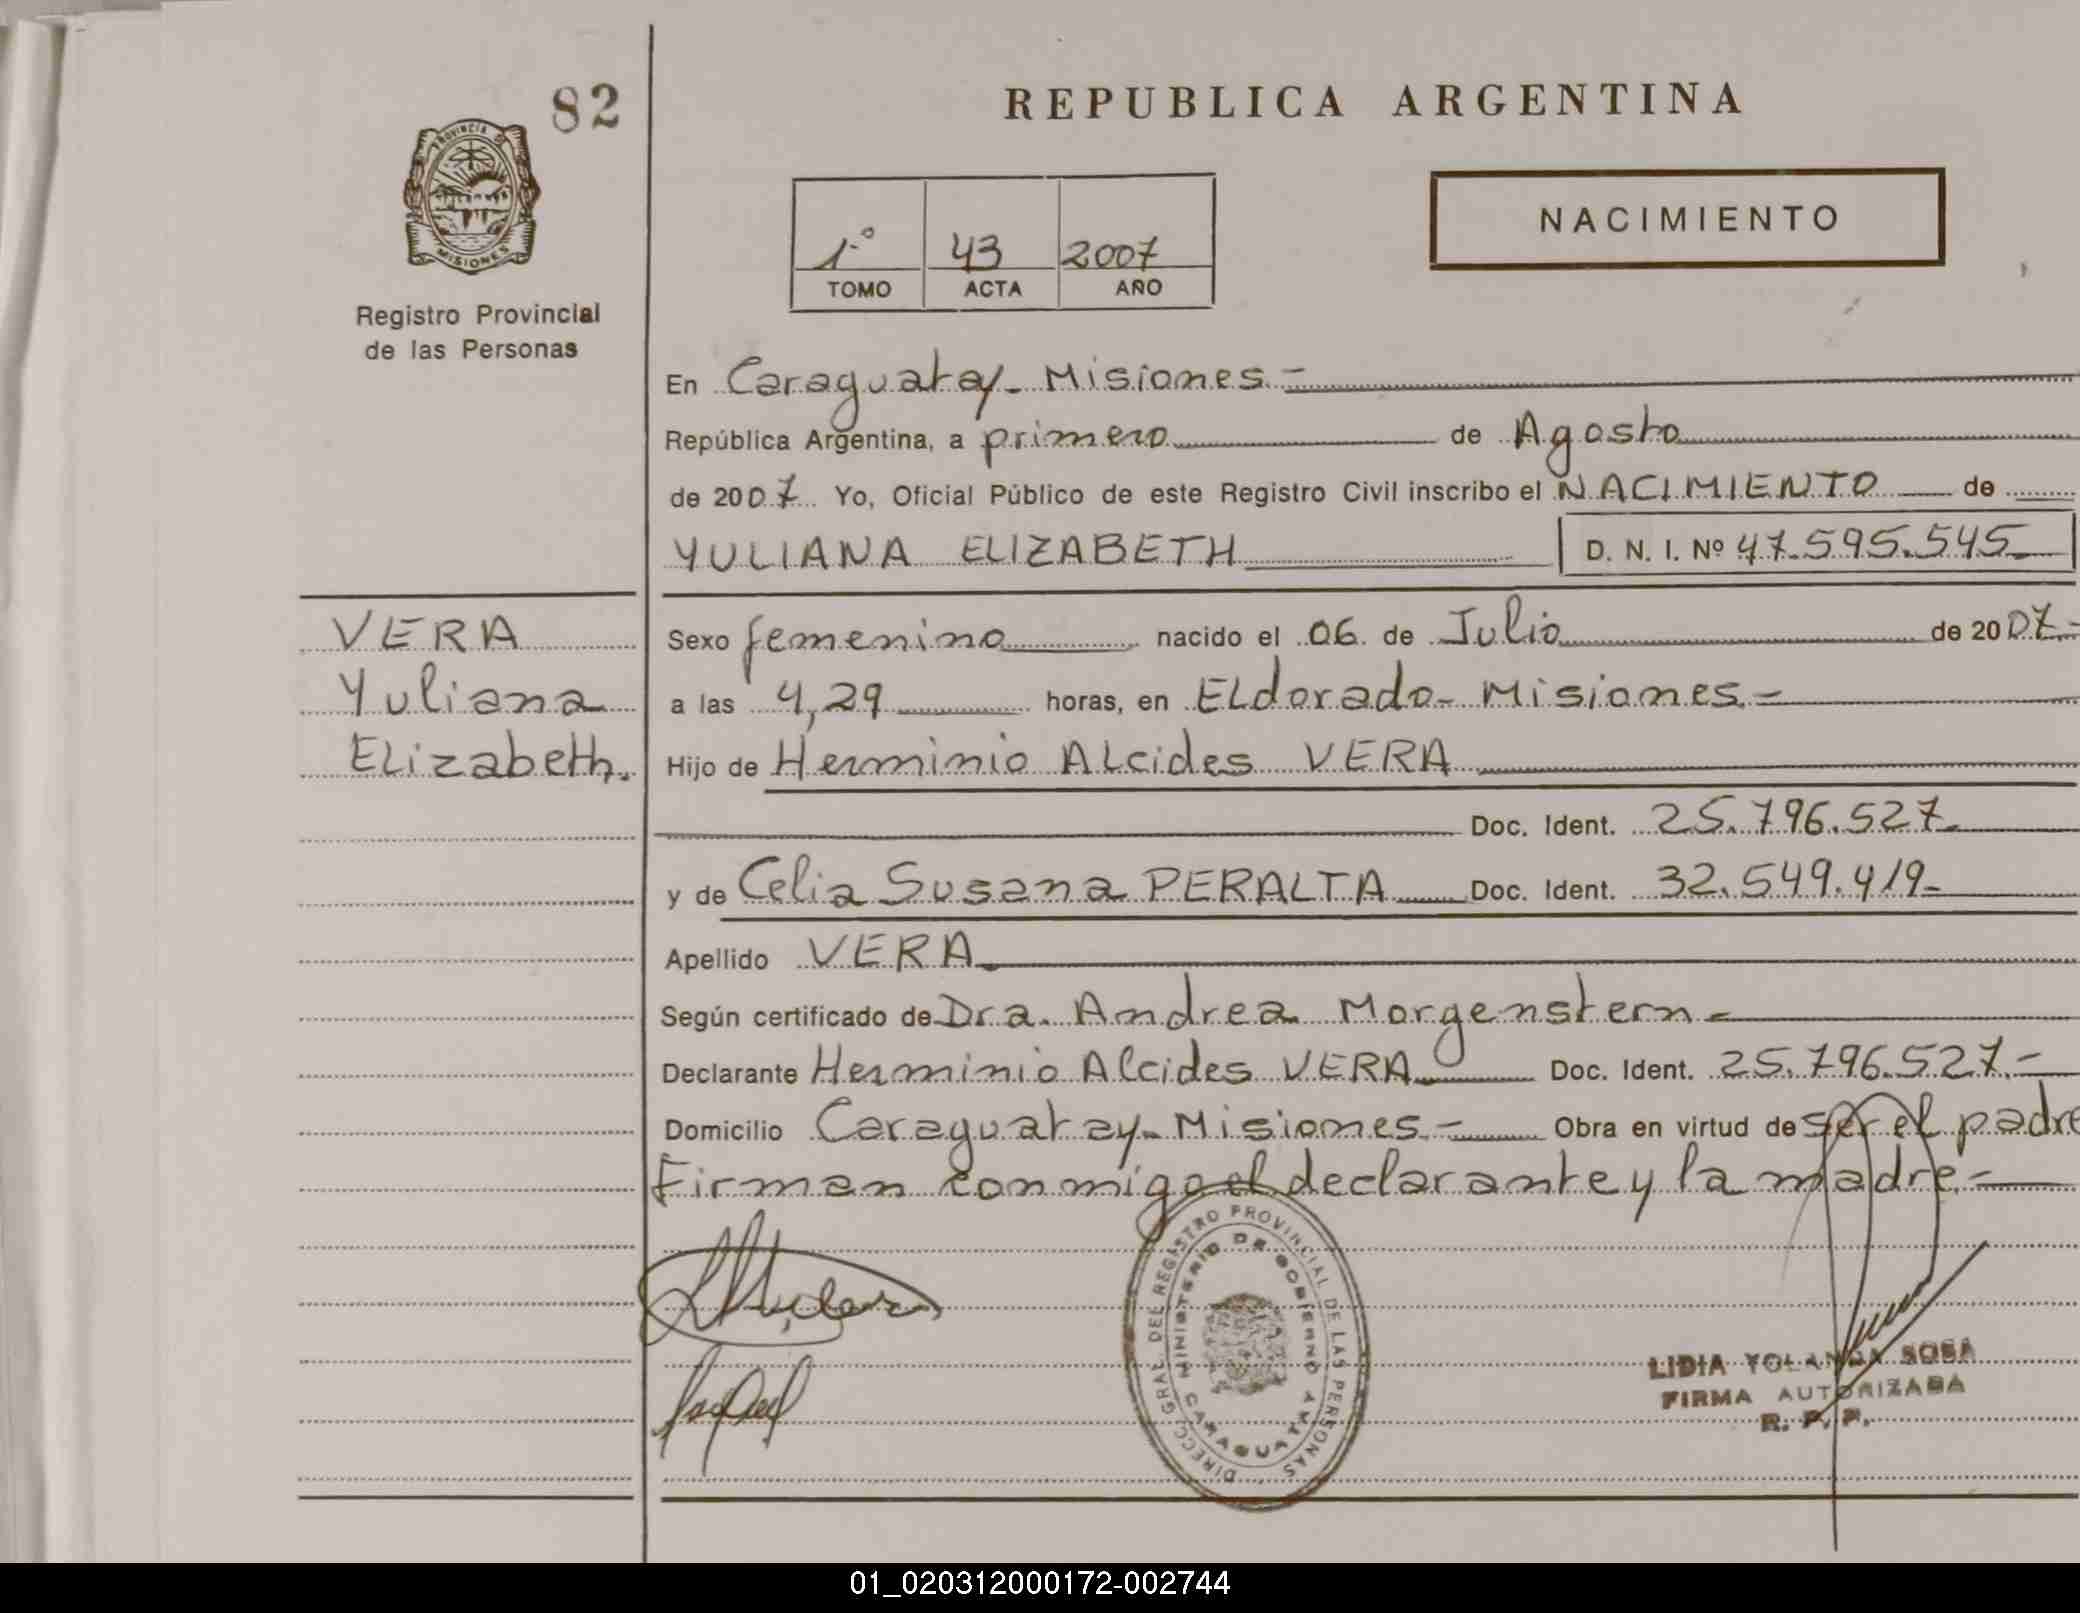 82
REPUBLICA ARGENTINA
PROVINCIA DE
MISIONES
Registro Provincial
de las Personas
1.º 43 2007
TOMO ACTA AÑO
NACIMIENTO
En Caraguatay - Misiones.-
República Argentina, a primero de Agosto
de 2007 Yo, Oficial Público de este Registro Civil inscribo el NACIMIENTO de
YULIANA ELIZABETH D. N. I. Nº 47.595.545
VERA
Yuliana
Elizabeth.
Sexo femenino nacido el 06 de Julio de 2007.-
a las 4,29 horas, en Eldorado - Misiones.-
Hijo de Herminio Alcides VERA
Doc. Ident. 25.796.527.
y de Celia Susana PERALTA Doc. Ident. 32.549.419-
Apellido VERA
Según certificado de Dra. Andrea Morgenstern.-
Declarante Herminio Alcides VERA Doc. Ident. 25.796.527.-
Domicilio Caraguatay - Misiones.- Obra en virtud de ser el padre
Firman conmigo el declarante y la madre.-
DIRECC. GRAL. DEL REGISTRO PROVINCIAL DE LAS PERSONAS
MINISTERIO DE GOBIERNO
CARAGUATAY
LIDIA YOLANDA SOSA
FIRMA AUTORIZADA
R. P. P.
01_020312000172-002744